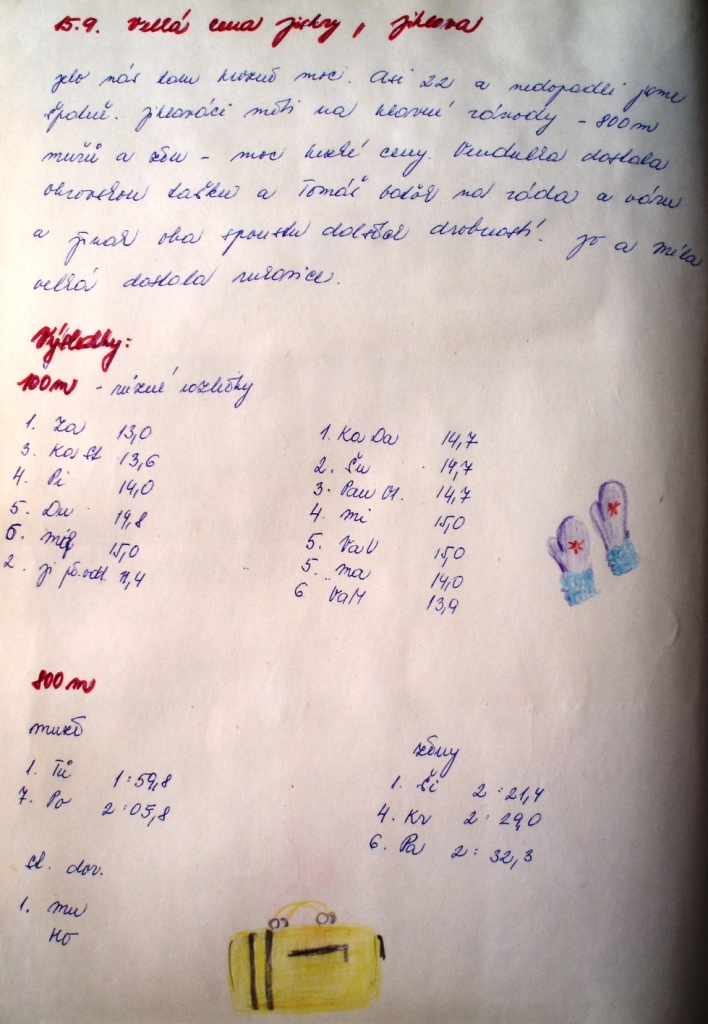 15.9. Velká cena Jiskry, Jihlava
Jelo nás tam hrozně moc. Asi 22 a nedopadli jsme
špatně. Jihlaváci měli na hlavní závody - 800 m
mužů a žen - moc hezké ceny. Vendulka dostala
obrovskou tašku a Tomáš na záda a vázu
a jinak oba spoustu dalších drobností. Jo a Míla
velká dostala rukavice.
Výsledky:
100 m - různé rozběhy
1. Za 13,0
3. Ka st 13,6
4. Pi 14,0
5. Du 14,8
6. 15,0
2. Ji 11,4
1. Ka Da 14,7
2. Šu 14,7
3. Pav Ol. 14,7
4. Mi 15,0
5. Va V 15,0
5. Ma 14,0
6 Va M 13,9
800 m
muži
1. Tů 1:59,8
7. Po 2:05,8
ženy
1. Ši 2:21,4
4. Kr 2:29,0
6. Pa 2:32,3
st. dor.
1. Mu
Ho